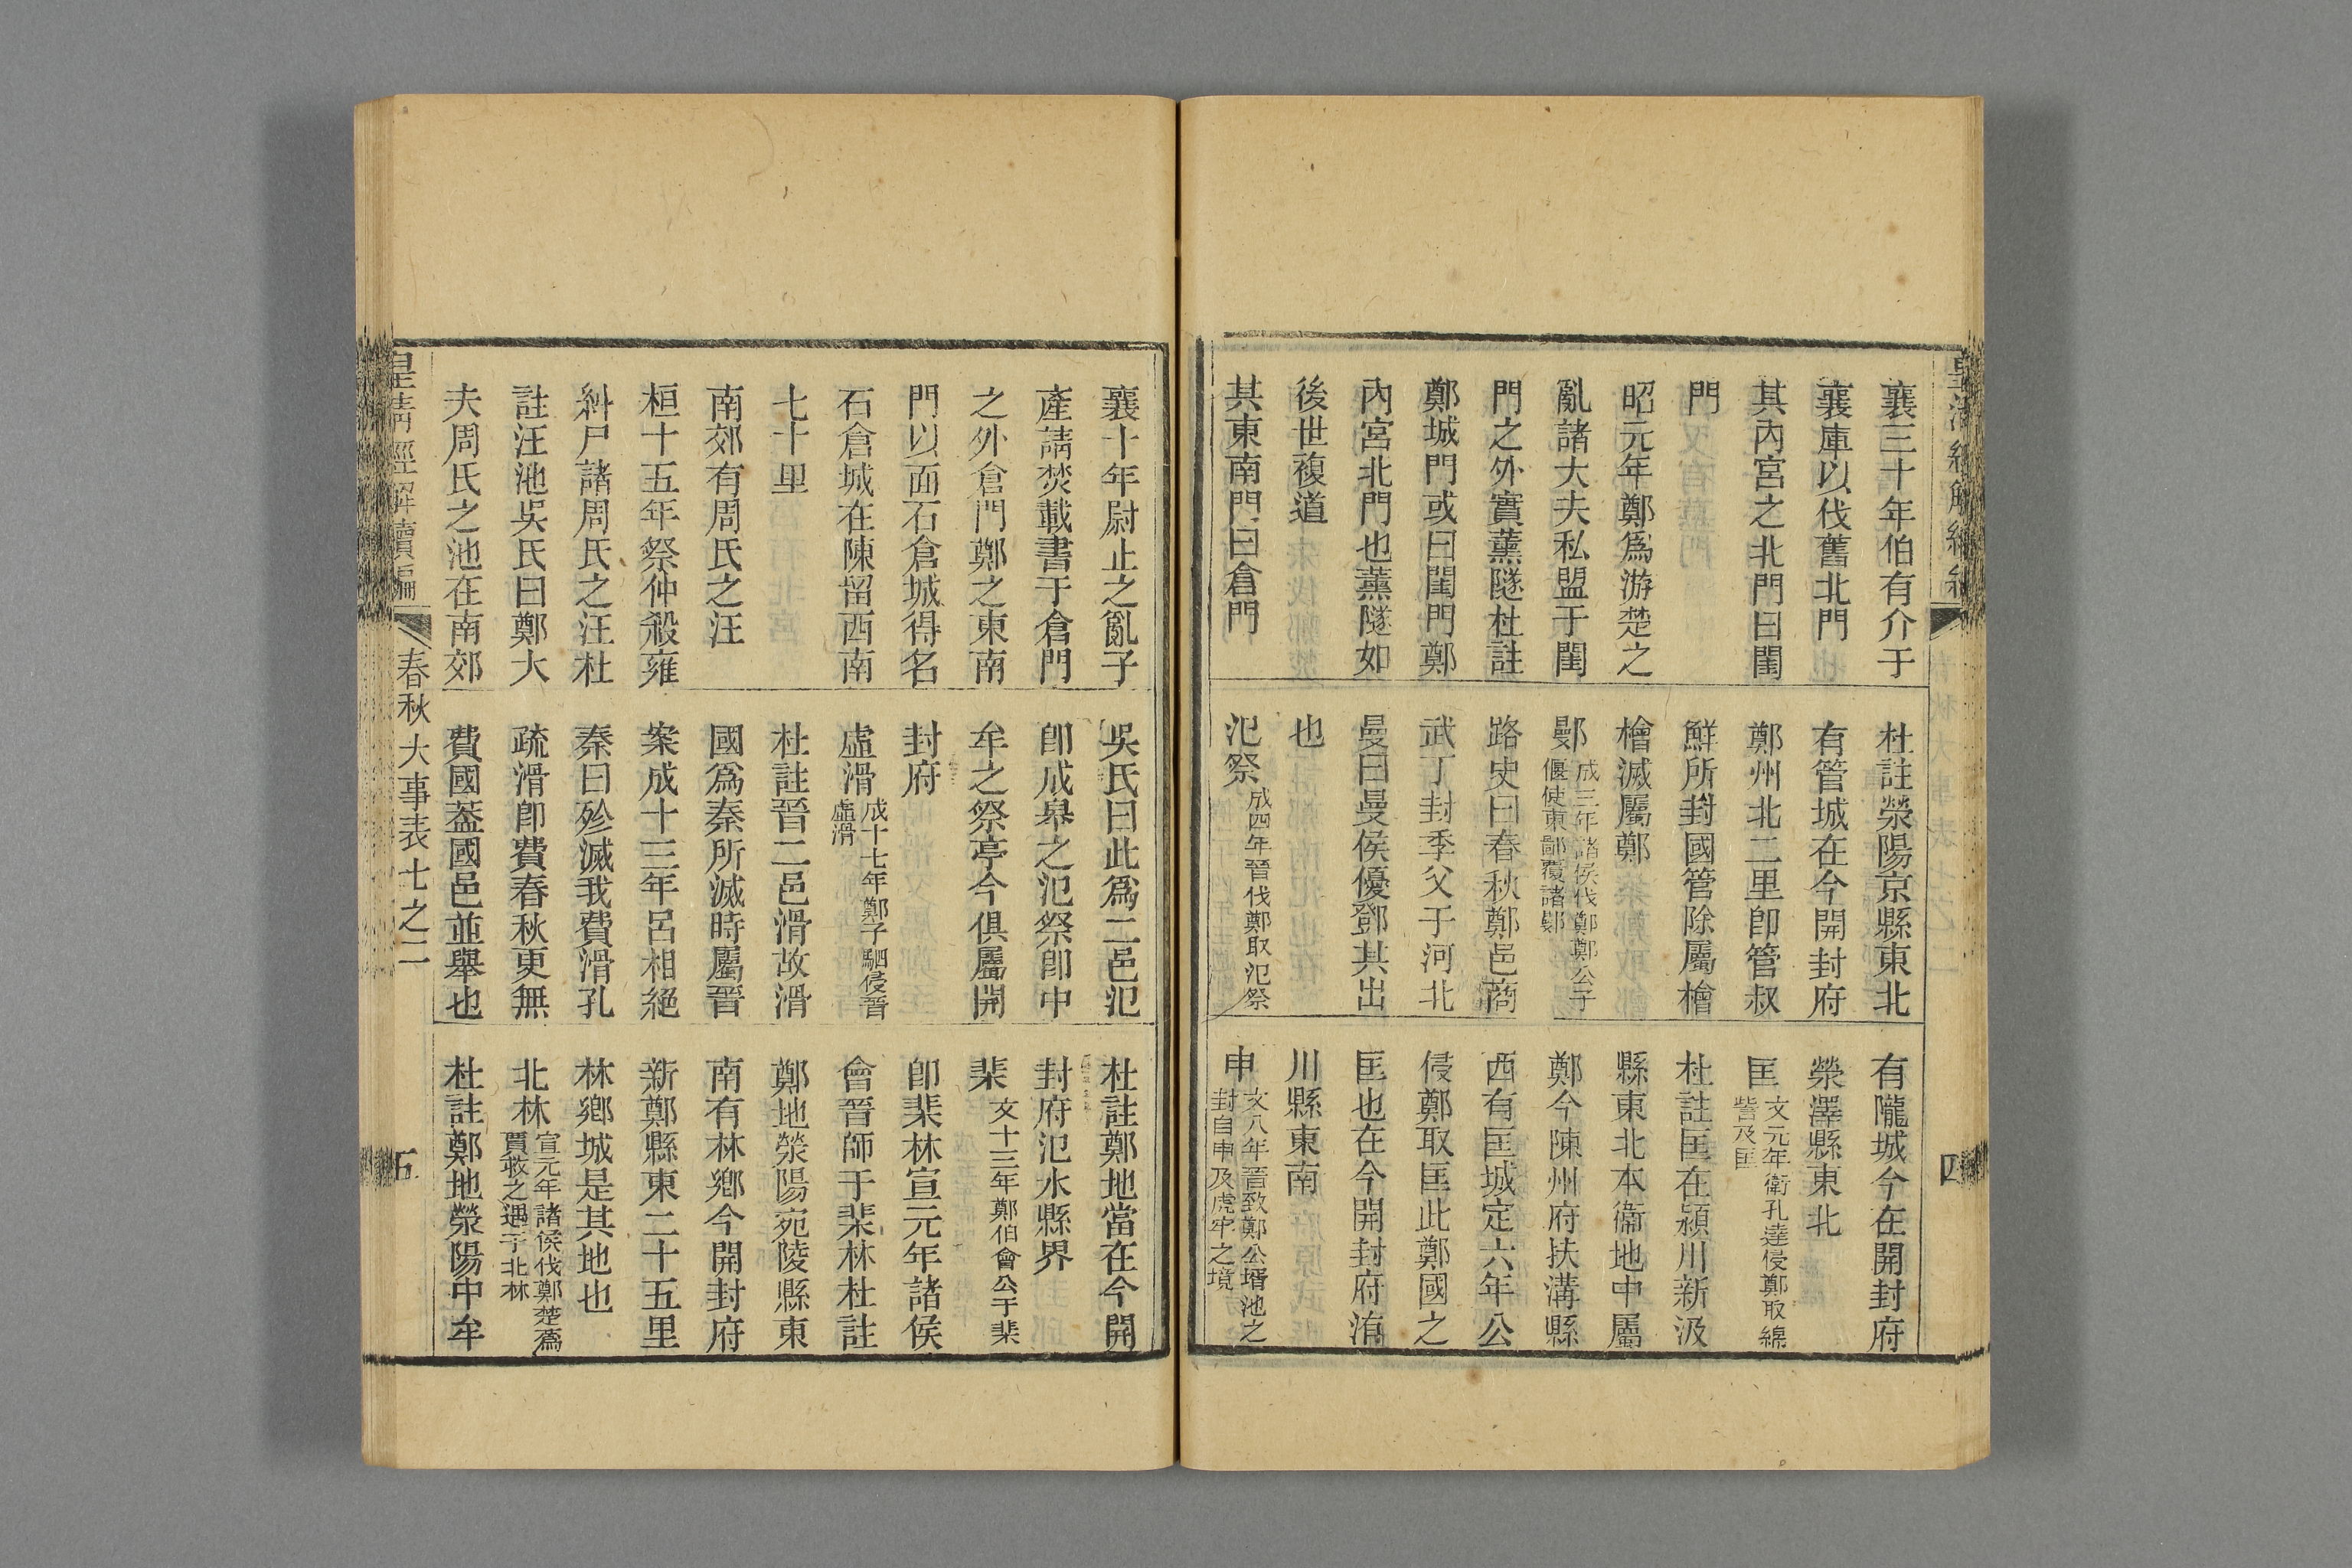 襄三十年伯有介于
襄庫以伐舊北門
其內宮之北門曰閨
門
昭元年鄭爲游楚之
亂諸大夫私盟于閨
門之外實薰隧杜註
鄭城門或曰閨門鄭
內宮北門也薰隧如
後世複道
其東南門曰倉門
杜註滎陽京縣東北
有管城在今開封府
鄭州北二里卽管叔
鮮所封國管除屬檜
檜滅屬鄭
鄤成三年諸侯伐鄭鄭公子
偃使東鄙覆諸鄤
路史曰春秋鄭邑商
武丁封季父于河北
曼曰曼侯優鄧其出
也
氾祭成四年晉伐鄭取氾祭
有隴城今在開封府
滎澤縣東北
匡文元年衛孔達侵鄭取綿
訾及匡
杜註匡在潁川新汲
縣東北本衞地中屬
鄭今陳州府扶溝縣
西有匡城定六年公
侵鄭取匡此鄭國之
匡也在今開封府洧
川縣東南
申文八年晉致鄭公壻池之
封自申及虎牢之境
四
襄十年尉止之亂子
產請焚載書于倉門
之外倉門鄭之東南
門以面石倉城得名
石倉城在陳留西南
七十里
南郊有周氏之汪
桓十五年祭仲殺雍
糾尸諸周氏之汪杜
註汪池吳氏曰鄭大
夫周氏之池在南郊
吳氏曰此爲二邑氾
卽成皋之氾祭卽中
牟之祭亭今俱屬開
封府
虛滑成十七年鄭子駟侵晉
虛滑
杜註晉二邑滑故滑
國爲秦所滅時屬晉
案成十三年呂相絕
秦曰殄滅我費滑孔
疏滑卽費春秋更無
費國葢國邑並舉也
杜註鄭地當在今開
封府氾水縣界
棐文十三年鄭伯會公于棐
卽棐林宣元年諸侯
會晉師于棐林杜註
鄭地滎陽宛陵縣東
南有林鄉今開封府
新鄭縣東二十五里
林鄉城是其地也
北林宣元年諸侯伐鄭楚蒍
賈救之遇于北林
杜註鄭地滎陽中牟
皇淸經解續編
春秋大事表七之二
五